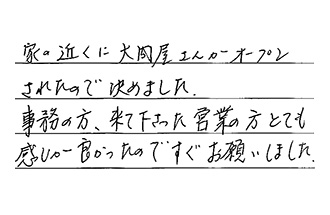 家の近くに大岡屋さんがオープン
されたので決めました.
事務の方、来て下さった営業の方とても
感じが良かったのですぐお願いしました.